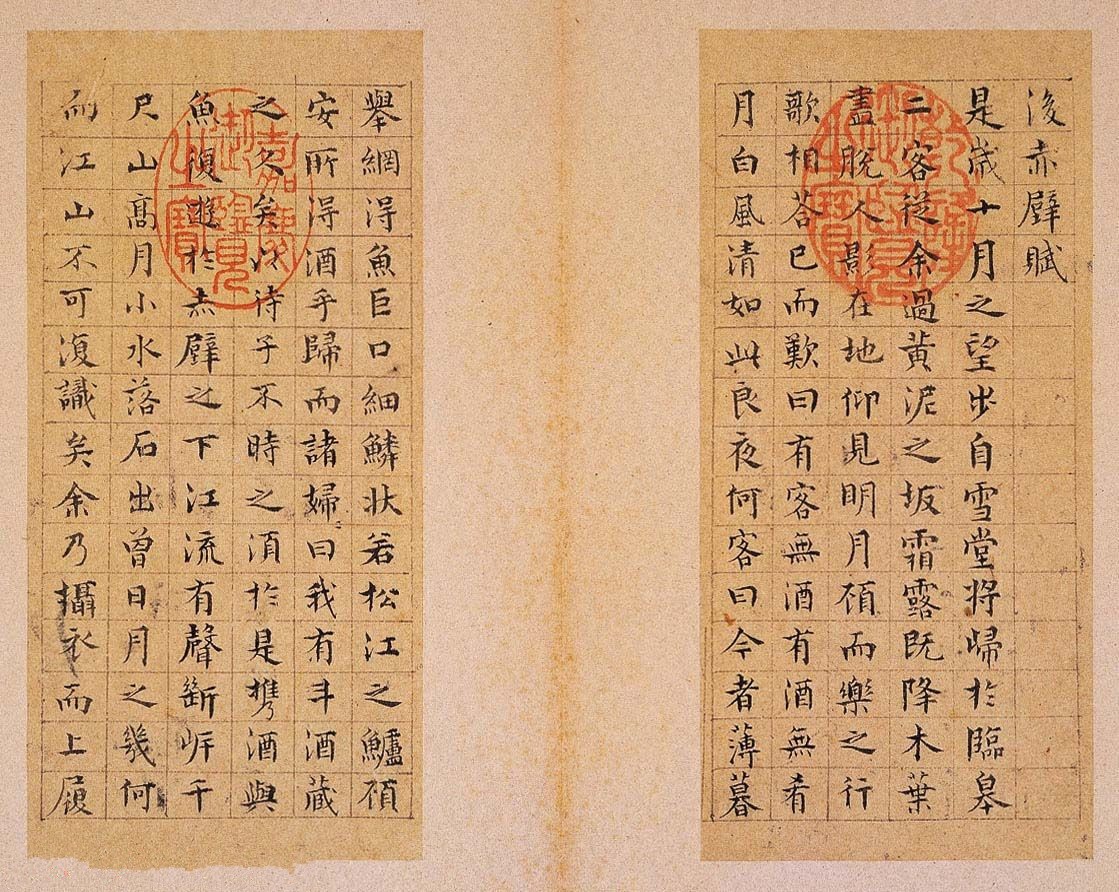 後赤壁賦
是歲十月之望步自雪堂將歸於臨皋
二客從余過黃泥之坂霜露既降木葉
盡脫人影在地仰見明月顧而樂之行
歌相荅已而歎曰有客無酒有酒無肴
月白風清如此良夜何客曰今者薄暮
乾隆御覽之寶
舉網得魚巨口細鱗狀若松江之鱸顧
安所得酒乎歸而諸婦曰我有斗酒藏
之久矣以待子不時之須於是攜酒與
魚復遊於赤壁之下江流有聲斷岸千
尺山髙月小水落石出曾日月之幾何
而江山不可復識矣余乃攝衣而上履
嘉慶御覽之寶